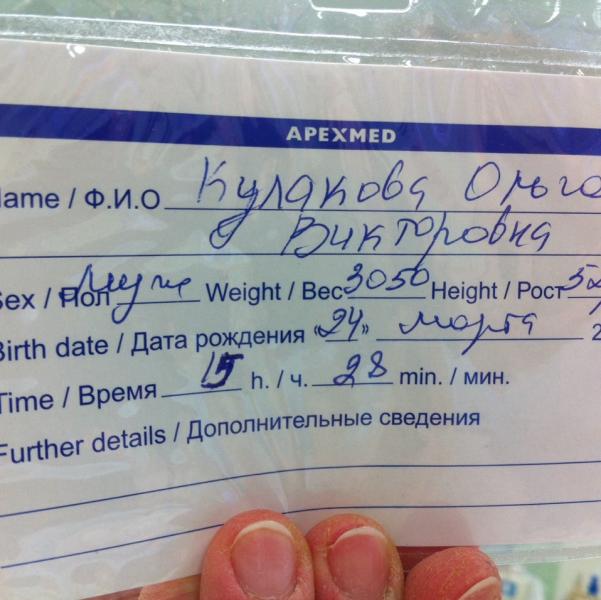 APEXMED
Name / Ф.И.О Кулакова Ольга
Викторовна
Sex / Пол муж Weight / Вес 3050 Height / Рост 52
Birth date / Дата рождения «24» марта 2
Time / Время 15 h. / ч. 28 min. / мин.
Further details / Дополнительные сведения